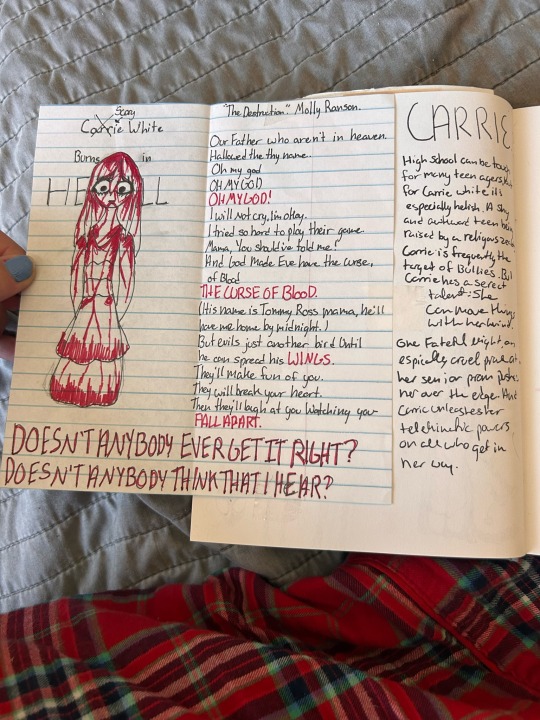 Scary
Carrie White
Burns in
HELL
DOESN'T ANYBODY EVER GET IT RIGHT?
DOESN'T ANYBODY THINK THAT I HEAR?
"The Destruction". Molly Ranson.
Our Father who aren't in heaven.
Hallowed the thy name.
Oh my god
OH MY GOD
OH MY GOD!
I will not cry, I'm okay.
I tried so hard to play their game.
Mama, You should've told me!
And God Made Eve have the curse,
of Blood
THE CURSE OF BLOOD.
(His name is Tommy Ross mama, he'll
have me home by midnight.)
But evils just another bird Until
he can spread his WINGS.
They'll make fun of you.
They will break your heart.
Then they'll laugh at you Watching you
FALL APART.
CARRIE
High School can be tough
for many teenagers but
for Carrie white it's
especially helish. A shy
and awkward teen being
raised by a religous
Carrie is frequently the
target of Bullies. But
Carrie has a secret
talent: She
can move things
with her mind.
One Fateful Night, an
espicially cruel prank at
her senior prom pushes
her over the edge. And
Carrie unleashes her
telekinetic powers
on all who get in
her way.